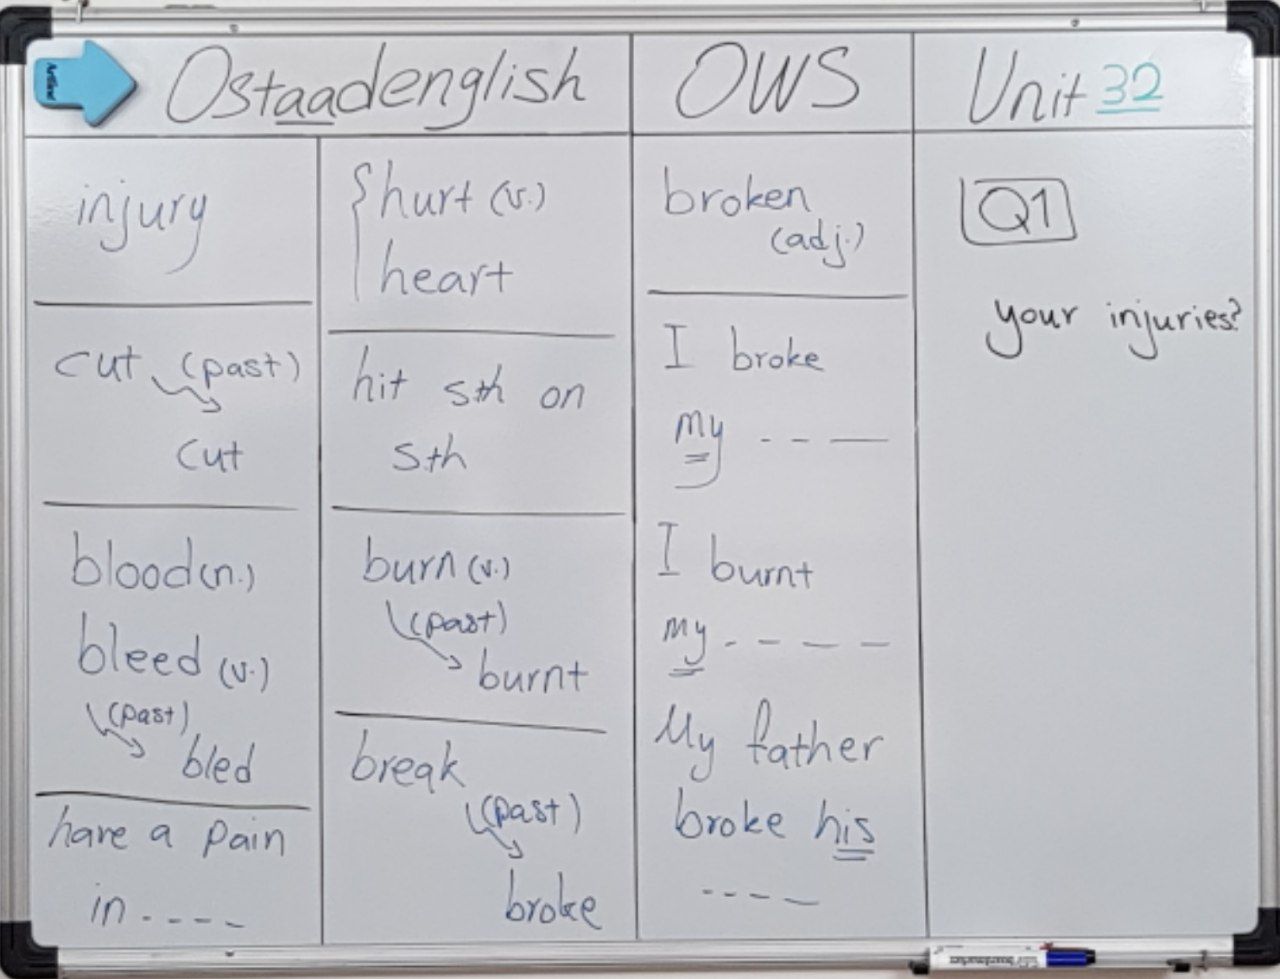 Ostaadenglish
OWS
Unit 32
injury
cut (past)
cut
blood (n.)
bleed (v.)
(past)
bled
have a pain
in ----
hurt (v.)
heart
hit sth on
sth
burn (v.)
(past)
burnt
break
(past)
broke
broken
(adj.)
I broke
my ---
I burnt
my ----
My father
broke his
----
Q1
your injuries?
Artline